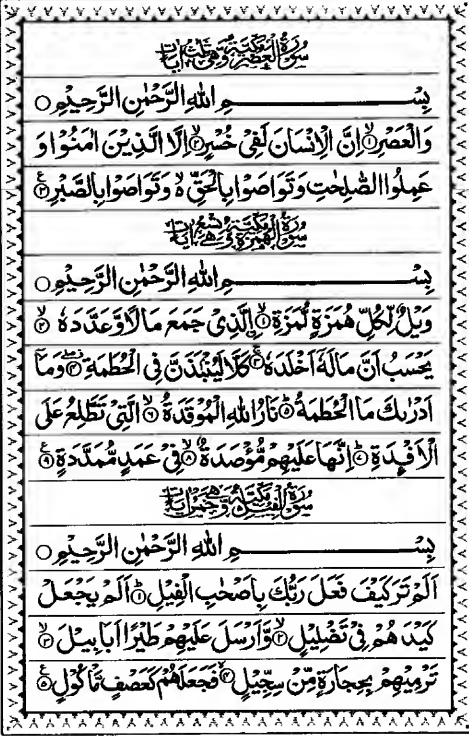 سُوْرَةُ الْعَصْرِ مَكِّيَّةٌ وَّهِيَ ثَلٰثُ اٰيَاتٍ
بِسْمِ اللهِ الرَّحْمٰنِ الرَّحِيْمِ ○
وَالْعَصْرِ ۙ﴿١﴾ اِنَّ الْاِنْسَانَ لَفِيْ خُسْرٍ ۙ﴿٢﴾ اِلَّا الَّذِيْنَ اٰمَنُوْا وَ
عَمِلُوا الصّٰلِحٰتِ وَتَوَاصَوْا بِالْحَقِّ ۙ۬ وَتَوَاصَوْا بِالصَّبْرِ ﴿٣﴾
سُوْرَةُ الْهُمَزَةِ مَكِّيَّةٌ وَّهِيَ تِسْعُ اٰيَاتٍ
بِسْمِ اللهِ الرَّحْمٰنِ الرَّحِيْمِ ○
وَيْلٌ لِّكُلِّ هُمَزَةٍ لُّمَزَةِ ۙ﴿١﴾ اِلَّذِيْ جَمَعَ مَالًا وَّعَدَّدَهٗ ۙ﴿٢﴾
يَحْسَبُ اَنَّ مَالَهٗٓ اَخْلَدَهٗ ۚ﴿٣﴾ كَلَّا لَيُنْۢبَذَنَّ فِي الْحُطَمَةِ ﴿٤﴾ وَمَآ
اَدْرٰىكَ مَا الْحُطَمَةُ ؕ﴿٥﴾ نَارُ اللهِ الْمُوْقَدَةُ ۙ﴿٦﴾ الَّتِيْ تَطَّلِعُ عَلَى
الْاَفْـِٕدَةِ ؕ﴿٧﴾ اِنَّهَا عَلَيْهِمْ مُّؤْصَدَةٌ ۙ﴿٨﴾ فِيْ عَمَدٍ مُّمَدَّدَةٍ ﴿٩﴾
سُوْرَةُ الْفِيْلِ مَكِّيَّةٌ وَّهِيَ خَمْسُ اٰيَاتٍ
بِسْمِ اللهِ الرَّحْمٰنِ الرَّحِيْمِ ○
اَلَمْ تَرَ كَيْفَ فَعَلَ رَبُّكَ بِاَصْحٰبِ الْفِيْلِ ؕ﴿١﴾ اَلَمْ يَجْعَلْ
كَيْدَهُمْ فِيْ تَضْلِيْلٍ ۙ﴿٢﴾ وَّاَرْسَلَ عَلَيْهِمْ طَيْرًا اَبَابِيْلَ ۙ﴿٣﴾
تَرْمِيْهِمْ بِحِجَارَةٍ مِّنْ سِجِّيْلٍ ۙ﴿٤﴾ فَجَعَلَهُمْ كَعَصْفٍ مَّاْكُوْلٍ ﴿٥﴾